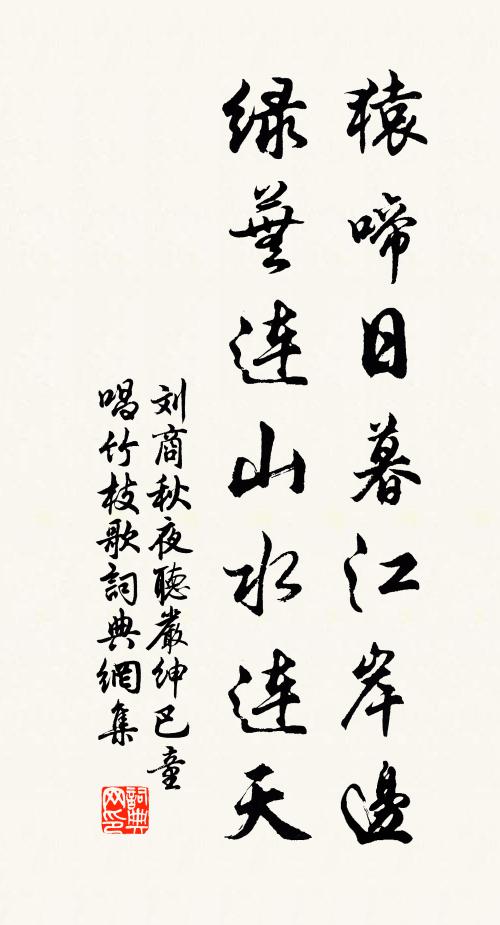 猿啼日暮江岸邊
绿蕪连山水连天
刘商秋夜聽嚴紳巴童
唱竹枝歌詞典網集
詞典
网印